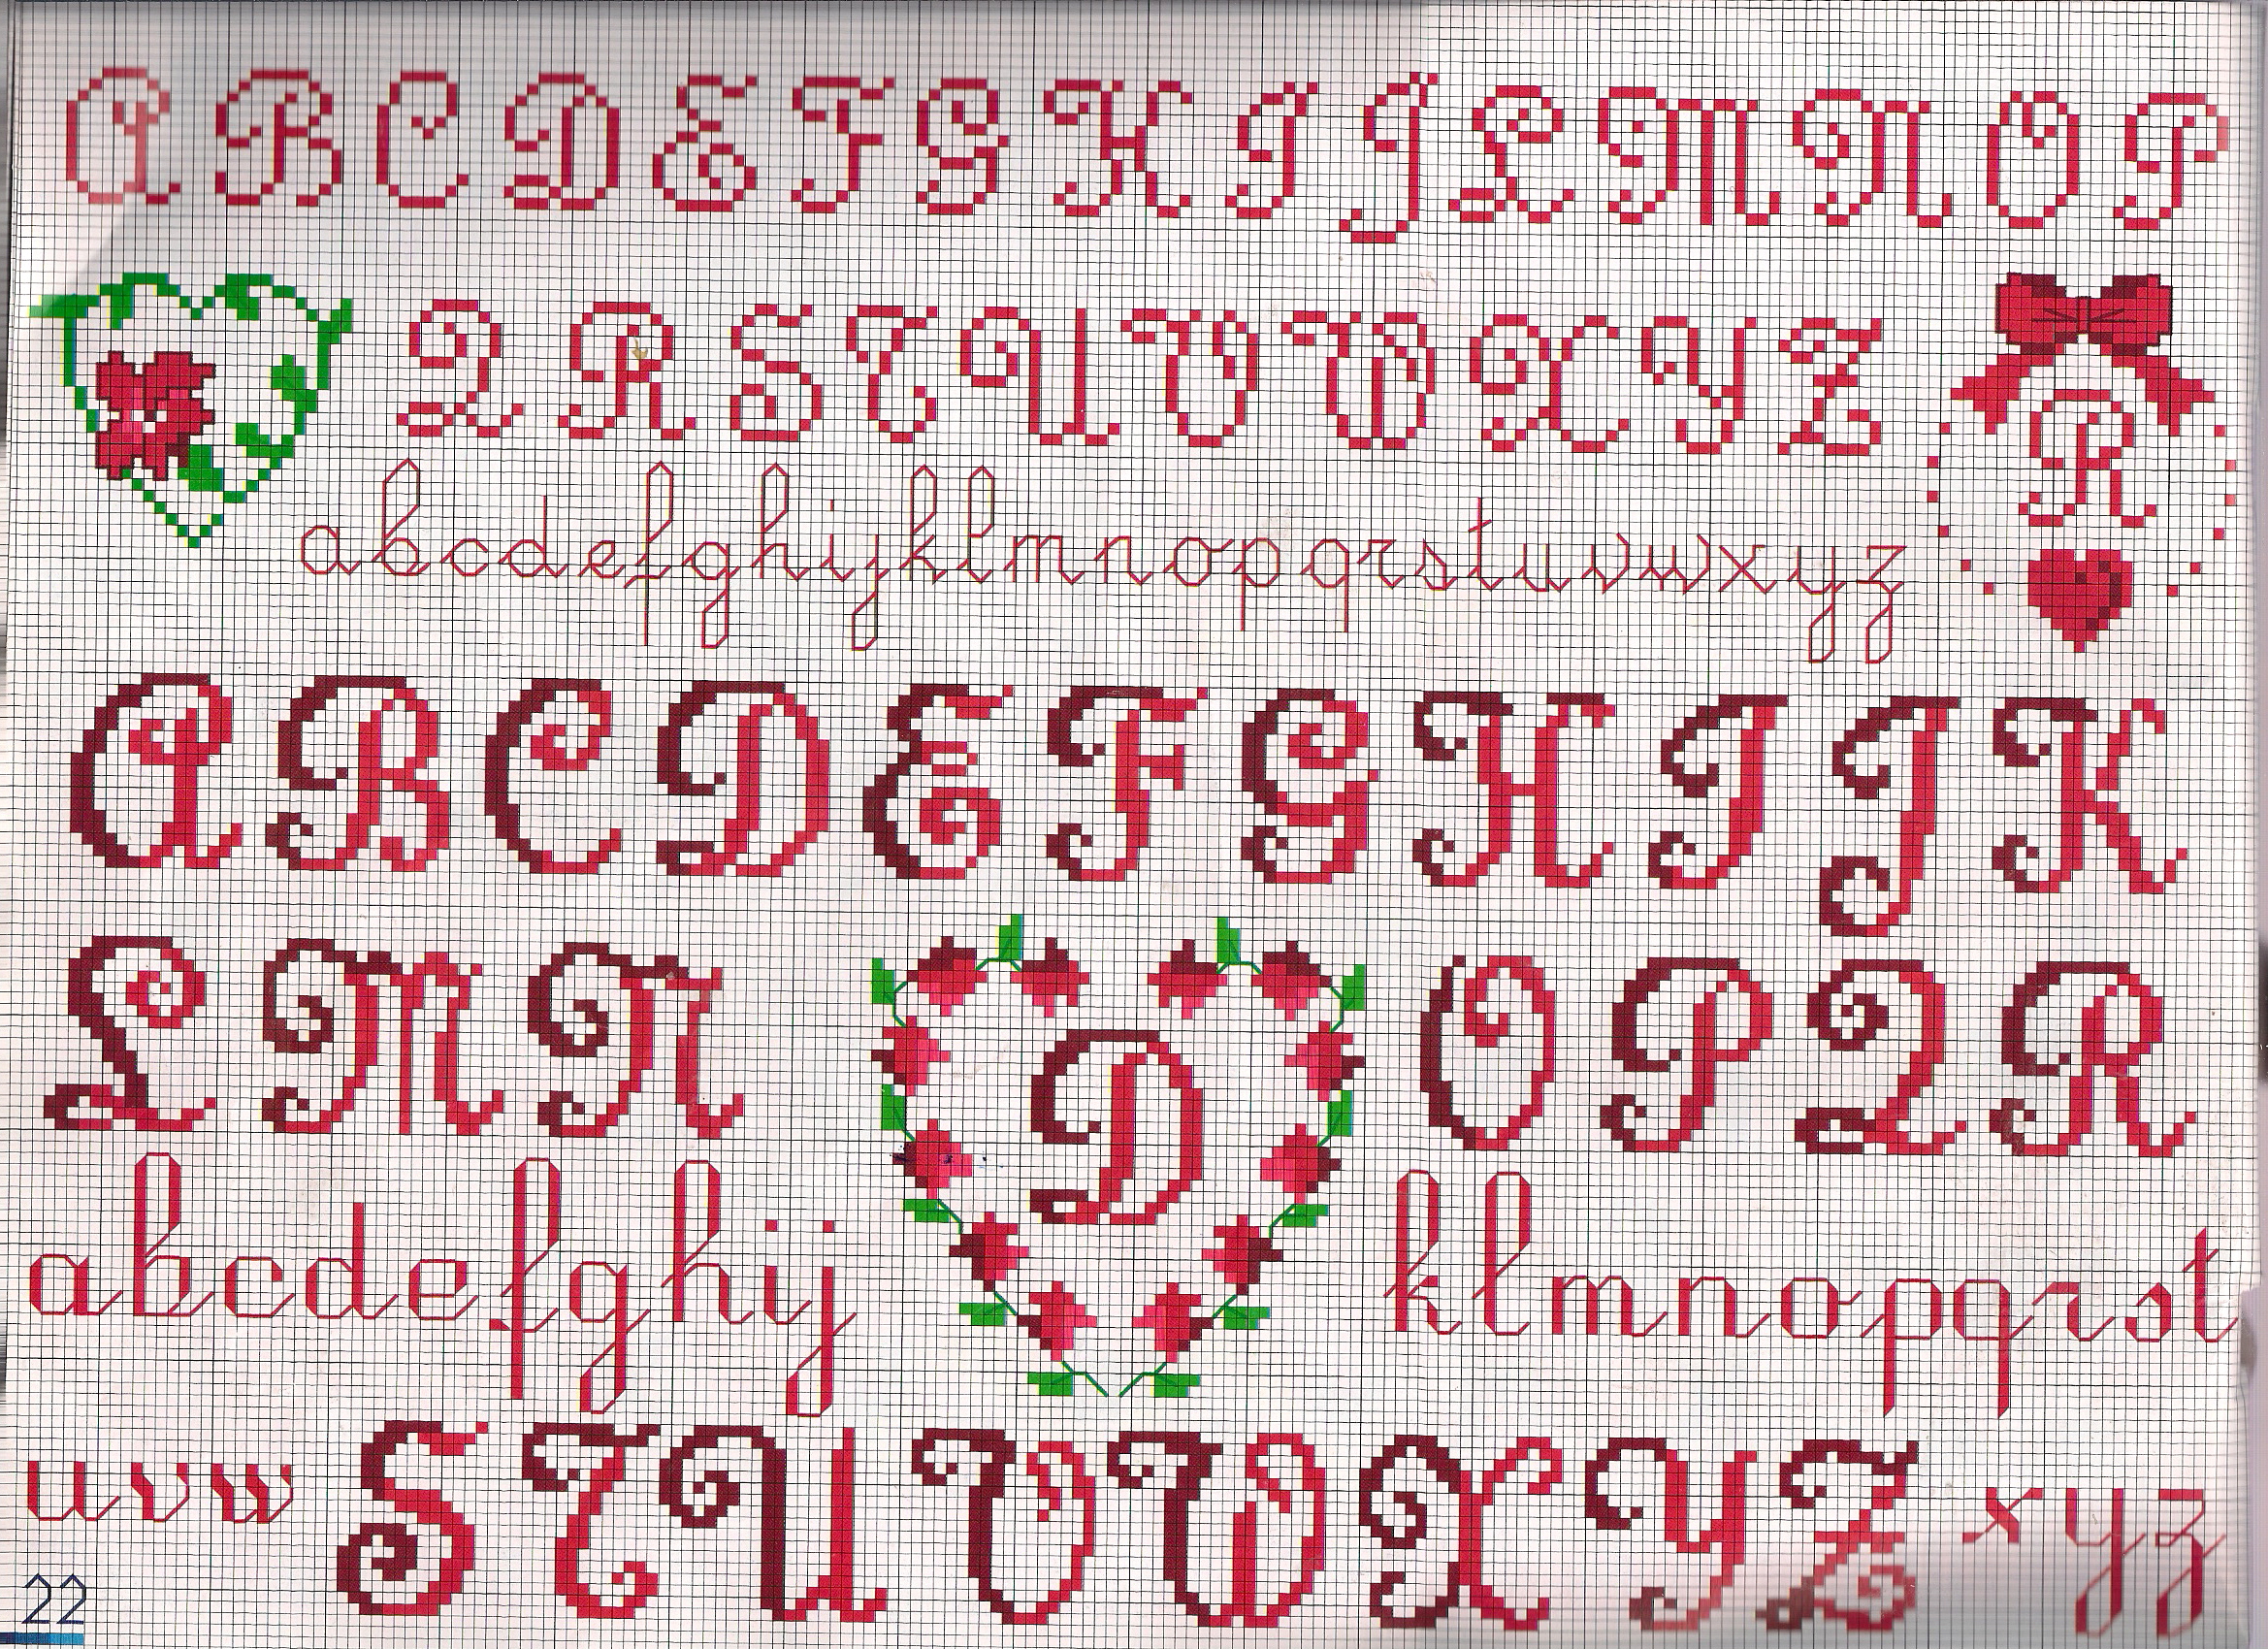 A B C D E F G H I J L M N O P
Q R S T U V W X Y Z
R
a b c d e f g h i j k l m n o p q r s t u v w x y z
A B C D E F G H I J K
L M N D O P Q R
a b c d e f g h i j k l m n o p q r s t
u v w S T U V W X Y Z x y z
22